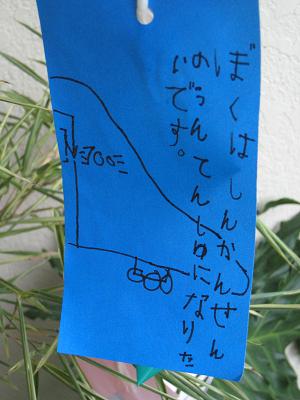 ぼくはしんかんせん
のうんてんしゅになりた
いです。
N700